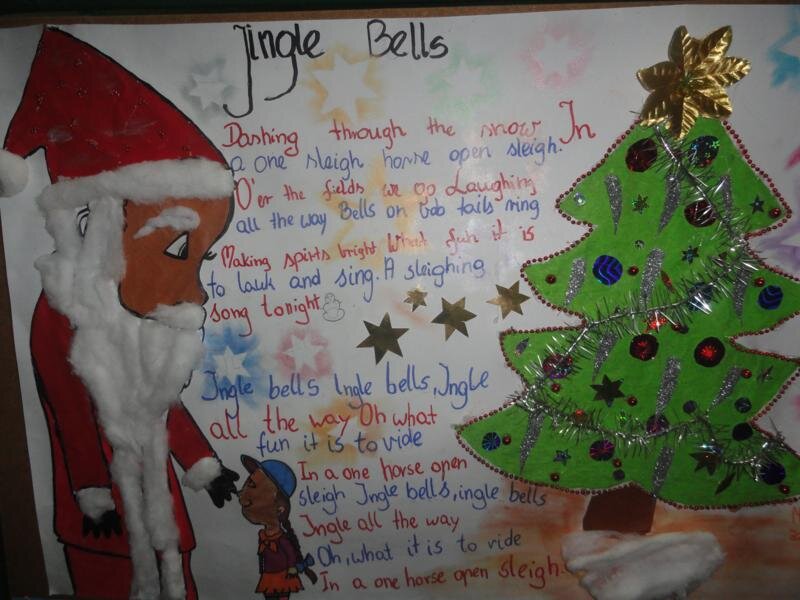 Jingle Bells
Dashing through the snow In
a one sleigh horse open sleigh.
O'er the fields we go Laughing
all the way Bells on bob tails ring
Making spirts bright What fun it is
to lauk and sing. A sleighing
song tonight
Jngle bells Jngle bells, Jngle
all the way Oh what
fun it is to ride
In a one horse open
sleigh Jngle bells, ingle bells
Jngle all the way
Oh, what it is to ride
In a one horse open sleigh.